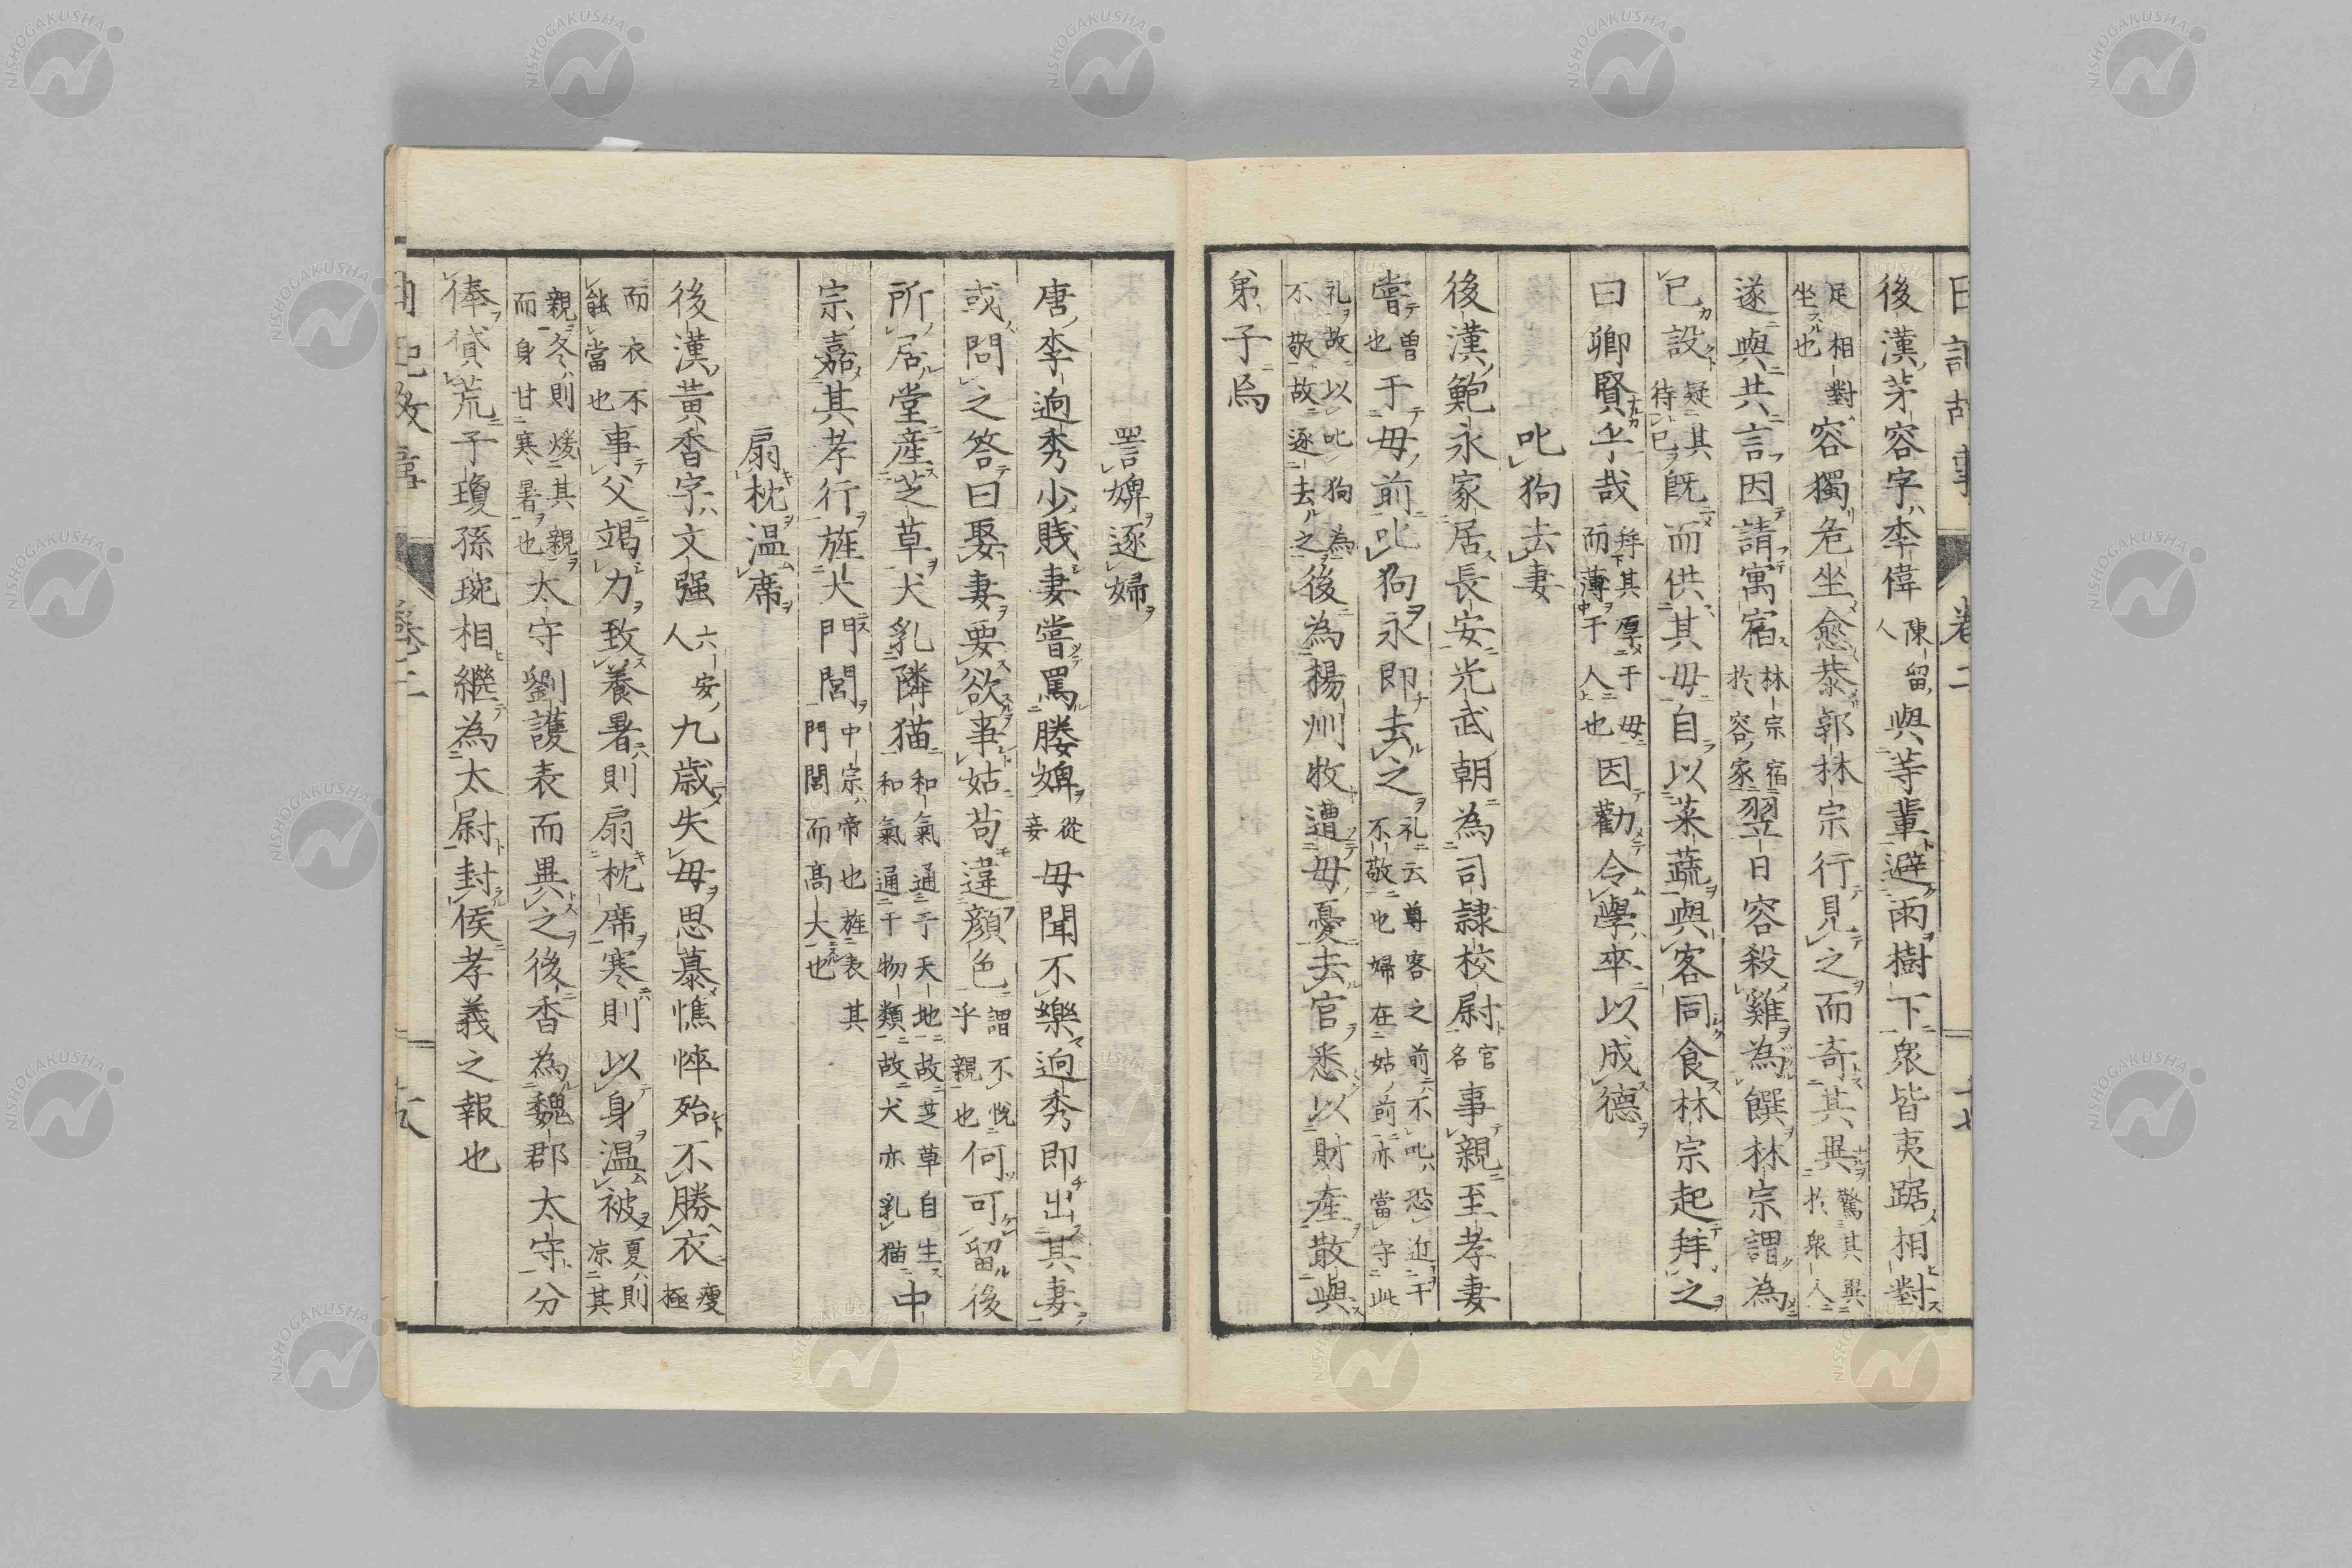 後漢茅容字季偉陳留人與等輩避雨樹下衆皆夷踞相對
足相對坐也容獨危坐愈恭郭林宗行見之而奇其異驚其異於衆人
遂與共言因請寓宿林宗宿於容家翌日容殺雞為饌林宗謂為
已設疑其待已既而供其母自以菜蔬與客同食林宗起拜之
曰卿賢乎哉拜其厚于母而薄于人也因勸令學卒以成德
叱狗去妻
後漢鮑永家居長安光武朝為司隷校尉官名事親至孝妻
嘗曽也于母前叱狗永即去之礼云尊客之前不叱恐近于不敬也婦在姑前亦當守此
礼故以叱狗為不敬故逐去之後為楊州牧遭母憂去官悉以財産散與
弟子焉
詈婢逐婦
唐李迥秀少賤妻嘗罵媵婢從妾母聞不樂迥秀即出其妻
或問之答曰娶妻要欲事姑苟違顔色謂不悅乎親也何可留後
所居堂産芝草犬乳隣猫和氣通于天地故芝草自生和氣通于物類故犬亦乳猫中
宗嘉其孝行旌大門閭中宗帝也旌表其門閭而高大也
扇枕温席
後漢黄香字文强六安人九歲失母思慕憔悴殆不勝衣瘦極
而衣不能當也事父竭力致養暑則扇枕席寒則以身温被夏則凉其
親冬則煖其親而身甘寒暑也太守劉護表而異之後香為魏郡太守分
俸貸荒子瓊孫琬相繼為太尉封侯孝義之報也